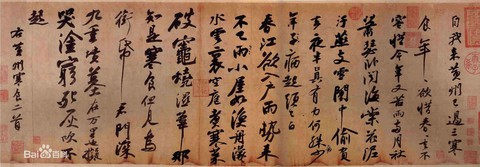 自我來黃州已過三寒
食年〻欲惜春〻去不
容惜今年又苦雨兩月秋
蕭瑟卧聞海棠花泥
汙燕支雪闇中偷負
去夜半真有力何殊少
年子病起頭已白
春江欲入戶雨勢來
不已雨小屋如漁舟濛〻
水雲裏空庖煮寒菜
破竈燒濕葦那
知是寒食但見烏
銜帋君門深
九重墳墓在万里也擬
哭塗窮死灰吹不
起
右黃州寒食二首
Bai百科